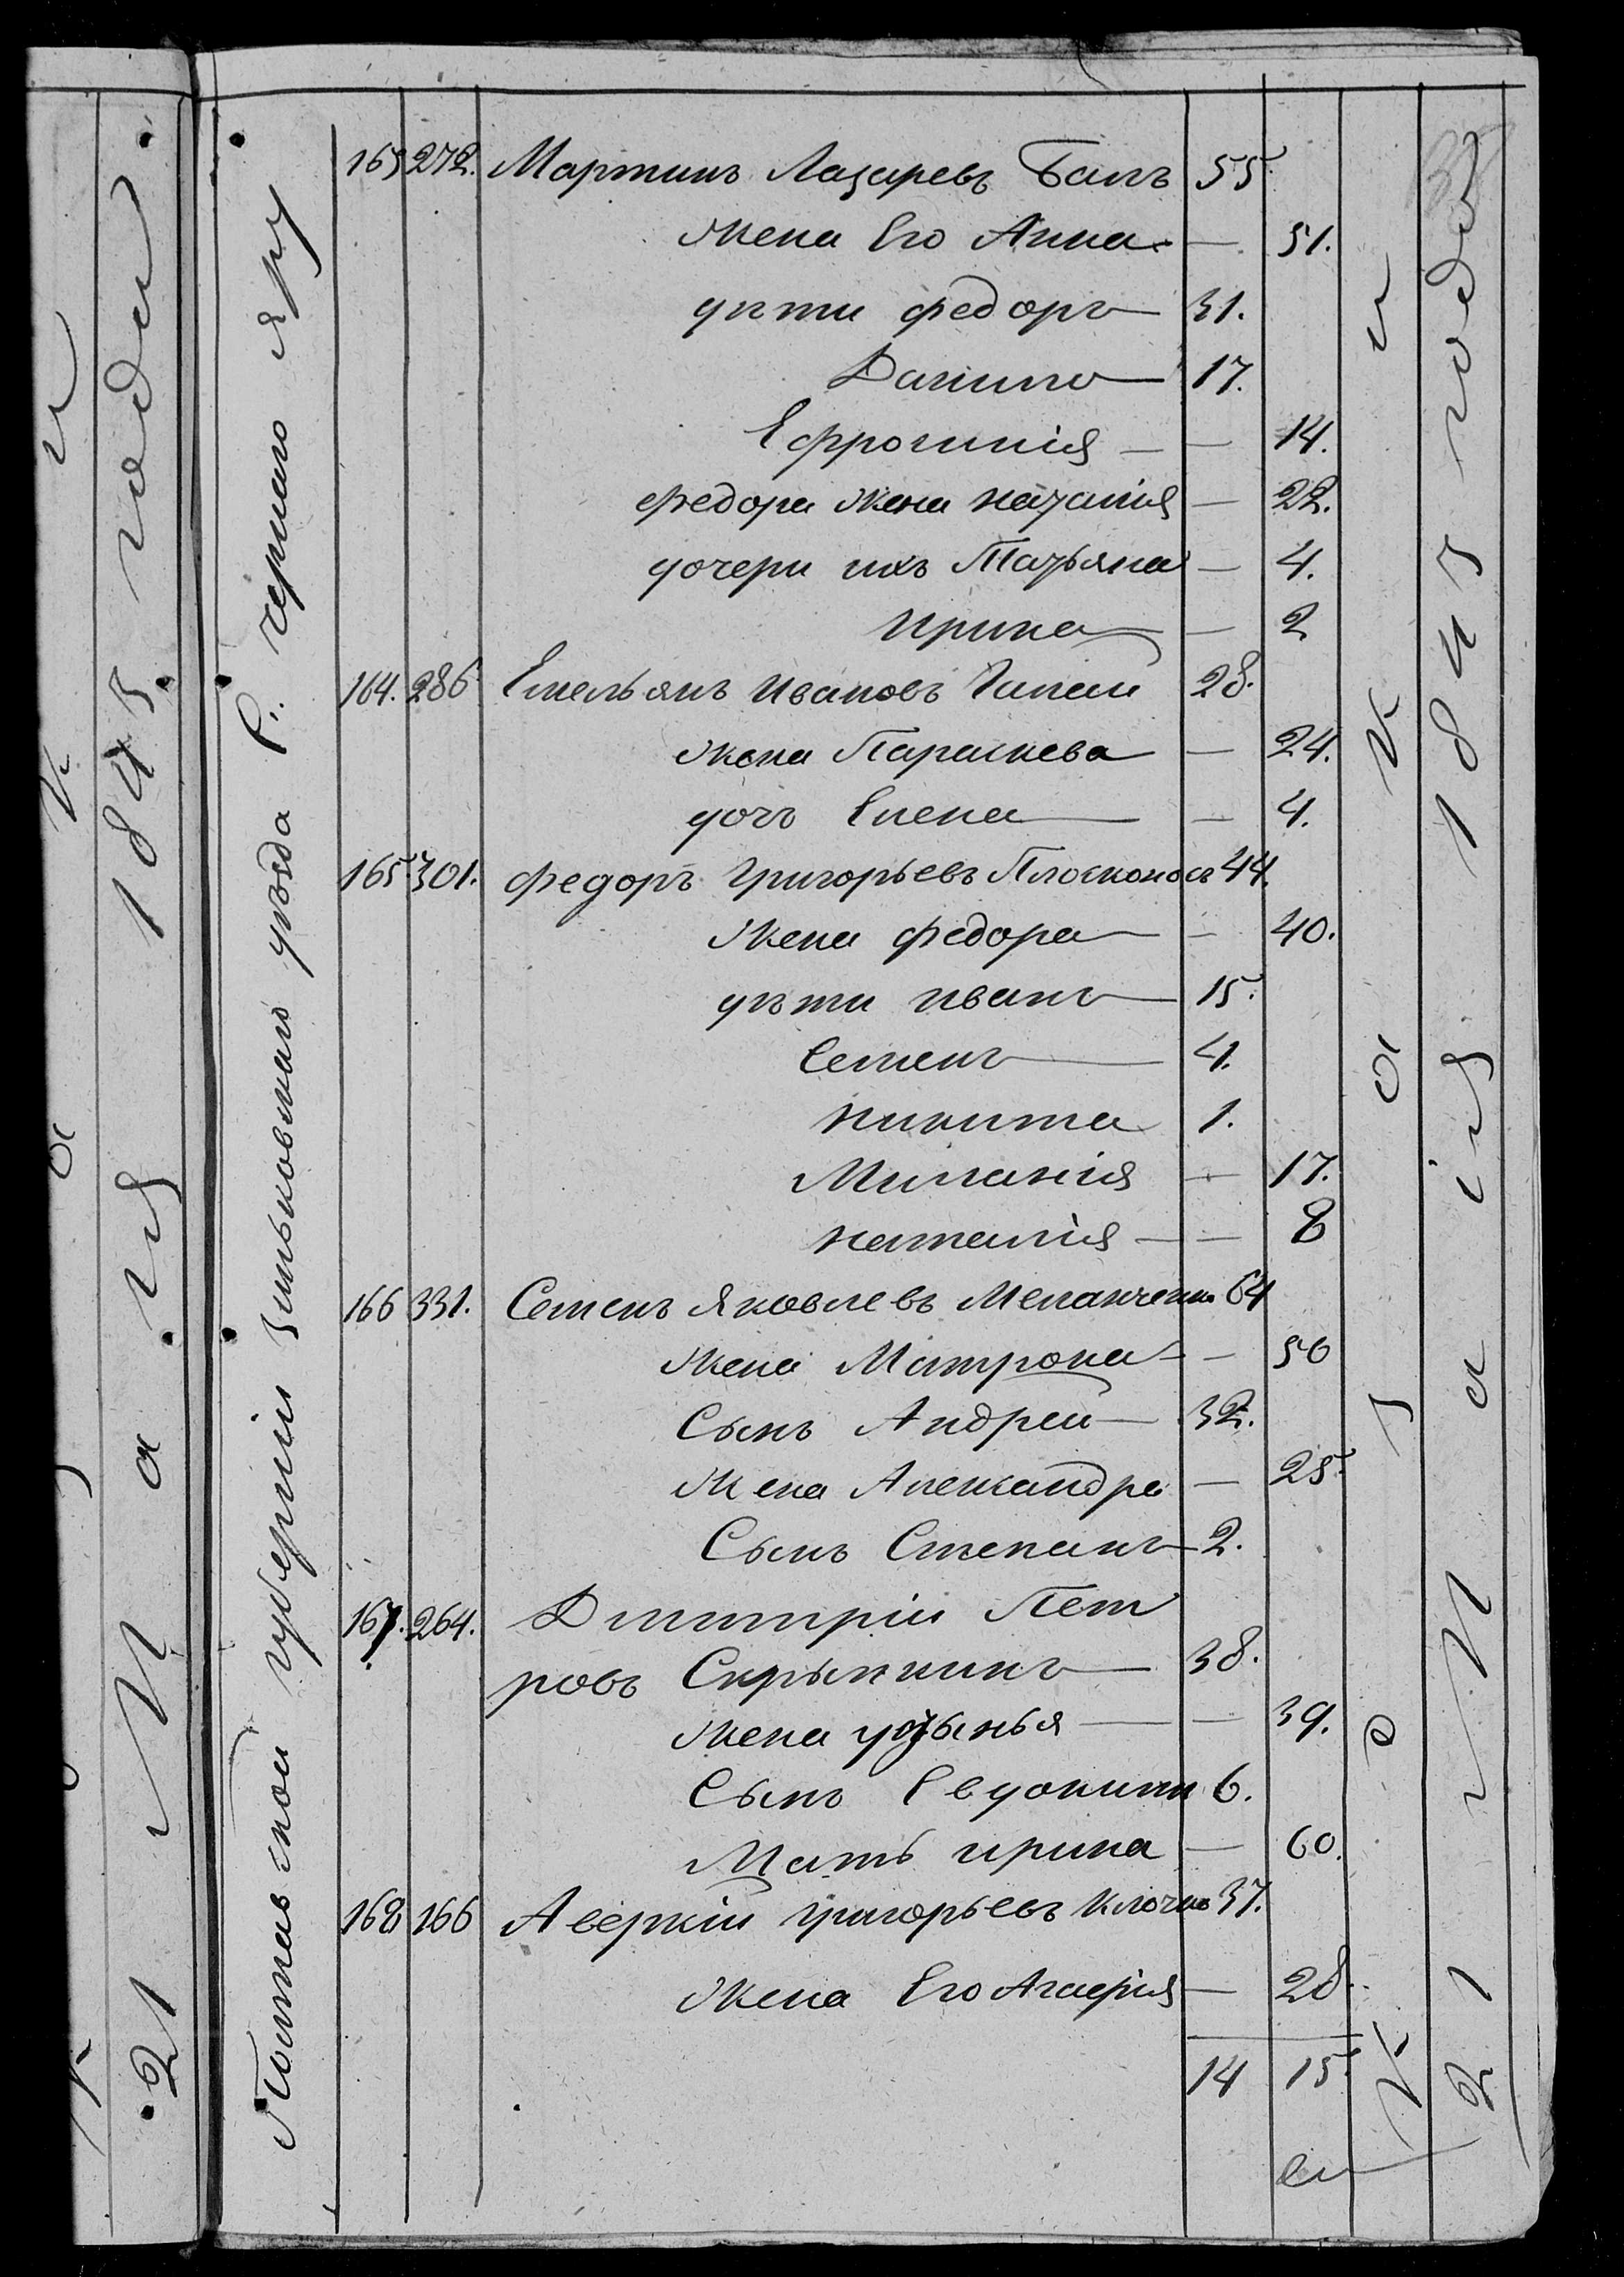 Полтавской губерніи Зиньковскаго уѣзда С. чернаго яру
163 272. Мартинъ Лазаревъ Балъ 55
жена Его Анна — 51.
дѣти федоръ 31.
Данило 17.
Ефросинія — 14.
федора жена наталія — 22.
дочери ихъ Татьяна — 4.
ирина — 2
164. 286 Емельянъ ивановъ 28.
жена Параскева — 24.
дочь Елена — 4.
165 301. федоръ григорьевъ Плосконосъ 44.
жена федора — 40.
дѣти иванъ 15.
Семенъ 4.
никита 1.
Миланія — 17.
наталія — 8
166 331. Семенъ яковлевъ Меланченко 64
жена Матрона — 56
Сынъ Андрей 32.
жена Александра — 25.
Сынъ Степанъ 2.
167. 264. Дмитрій Пет
ровъ Скрыпкинъ 38.
жена устынья — 39.
Сынъ Евдокимъ 6.
Мать ирина — 60.
168 166 Аверкій григорьевъ Клочко 37.
жена Его Агафія — 28.
14 15.
К а з а к и
21 М а я 1843 года
21 М а я 1843 года